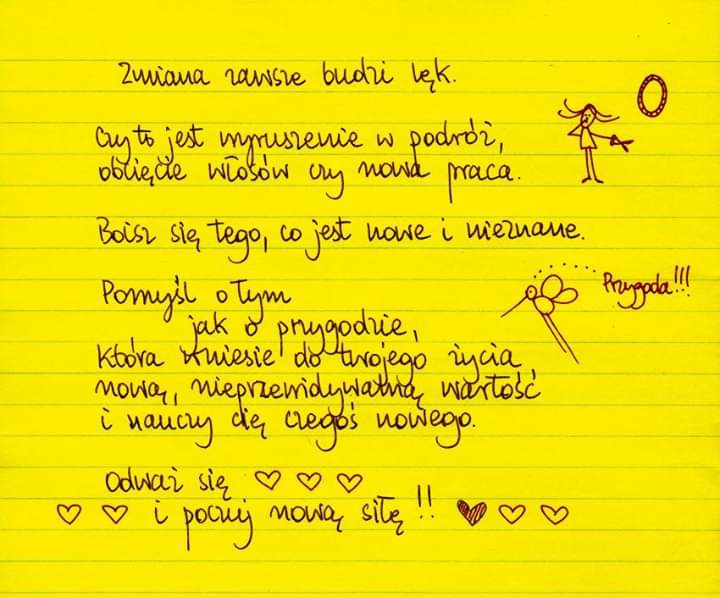 Zmiana zawsze budzi lęk.
Czy to jest wyruszenie w podróż,
obcięcie włosów czy nowa praca.
Boisz się tego, co jest nowe i nieznane.
Pomyśl o tym
jak o przygodzie,
Przygoda!!!
która wniesie do twojego życia
nową, nieprzewidywalną wartość
i nauczy cię czegoś nowego.
Odważ się
i poczuj nową siłę!!